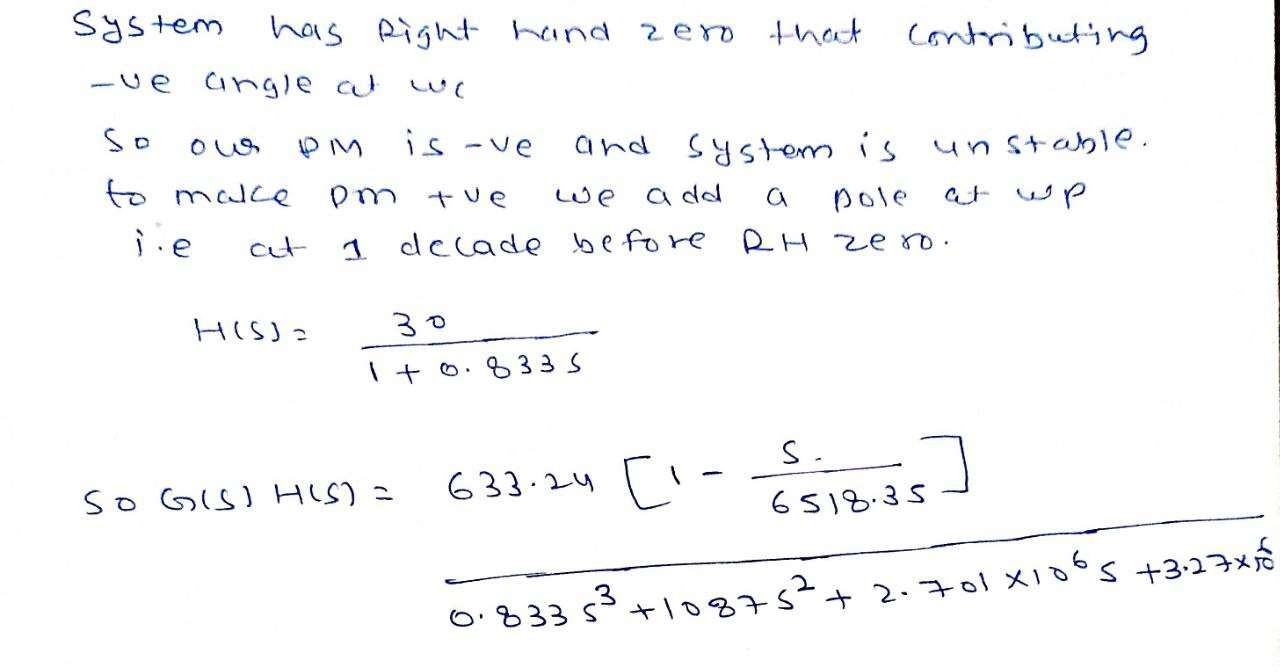 System has Right hand zero that contributing
-ve angle at wc
So our PM is -ve and system is unstable.
to make pm +ve we add a pole at wp
i.e at 1 decade before RH zero.
H(s) = 30 / 1 + 0.833s
So G(s) H(s) = 633.24 [1 - s. / 6518.35]
0.833 s³ + 1087 s² + 2.701 × 10⁶ s + 3.27 × 10⁶